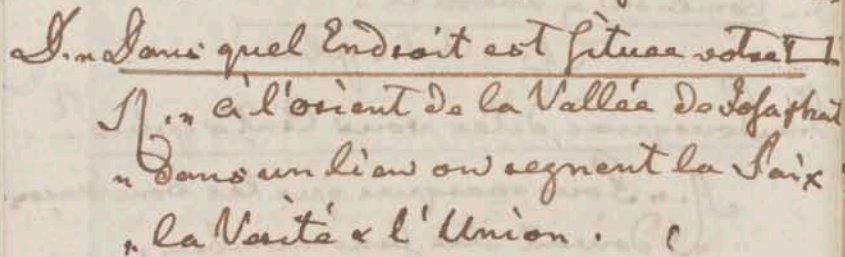 D. „ Dans quel Endroit est située votre ▭
R. „ à l'orient de la Vallée de Josaphat
„ dans un lieu ou regnent la Paix
„ la Verité & l'Union.